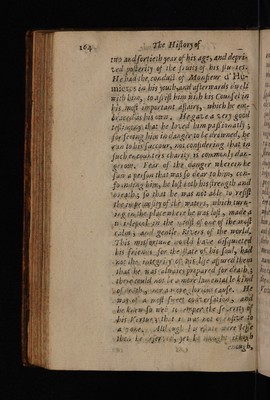 164 The History of
two and fortieth year of his age, and depri-
ved posterity of the fruits of his studies.
He had the conduct of Monsieur d' Hu-
mieres in his youth, and afterwards dwelt
with him, to assist him with his Counsel in
his most important affairs, which he em-
braced as his own. He gave a very good
testimony that he loved him passionately;
for seeing him in danger to be drowned, he
ran to his succour, not considering that in
such encounters charity is commonly dan-
gerous. Fear of the danger wherein he
saw a person that was so dear to him, con-
founding him, he lost both his strength and
breath; so that he was not able to resist
the impetuosity of the waters, which turn-
ing in the place where he was lost, made a
in the midst of one of the most
calm, and gentle Rivers of the world.
This misfortune would have disquieted
his friends for the state of his soul, had
not the integrity of his life assured them
that he was always prepared for death;
there could not be a more lamentable kind
of death, nor a more glorious cause. He
was of a most sweet conversation, and
he knew so well to temper the severity of
his Vertue, that it was not
to any. Although his were
then he yet he
enough,